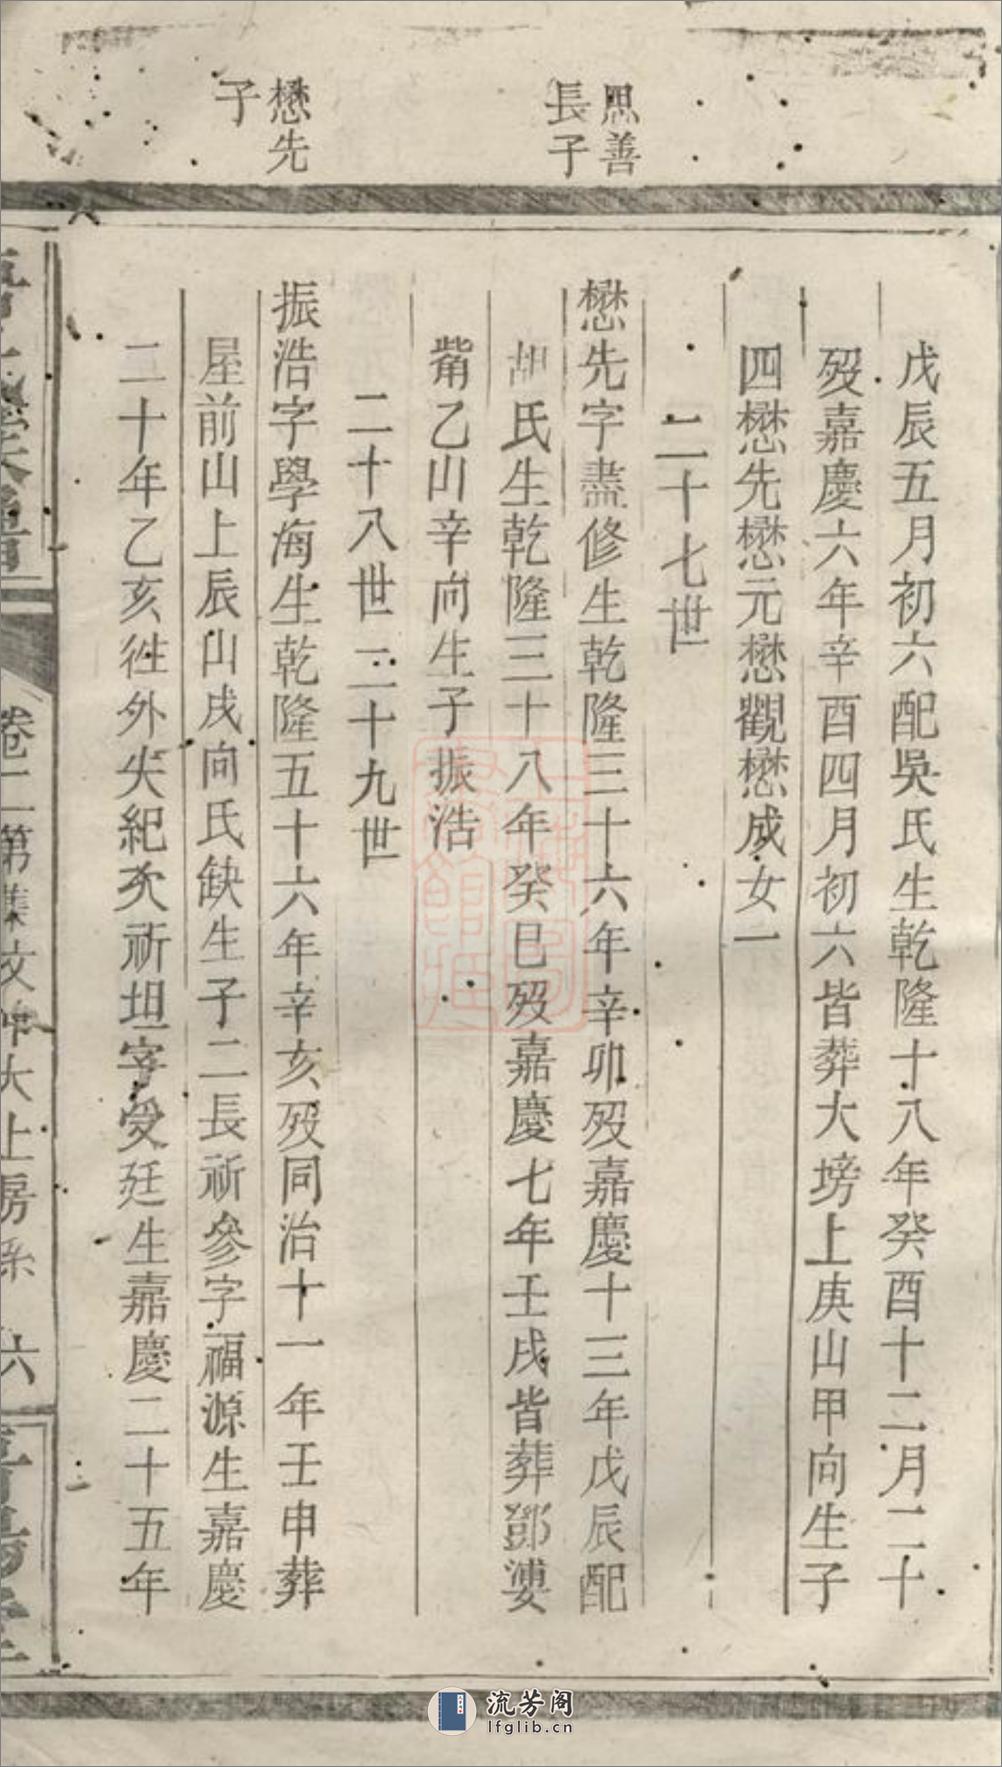 思善
長子
懋先
子
戊辰五月初六配吳氏生乾隆十八年癸酉十二月二十
歿嘉慶六年辛酉四月初六皆葬大塝上庚山甲向生子
四懋先懋元懋觀懋成女一
二十七世
懋先字盡修生乾隆三十六年辛卯歿嘉慶十三年戊辰配
胡氏生乾隆三十八年癸巳歿嘉慶七年壬戌皆葬鄧婆
乙山辛向生子振浩
二十八世 二十九世
振浩字學海生乾隆五十六年辛亥歿同治十一年壬申葬
屋前山上辰山戌向氏缺生子二長祈參字福源生嘉慶
二十年乙亥徃外失紀次祈坦字受廷生嘉慶二十五年
卷二第集文 大上房系 六
流芳阁
lfglib.cn